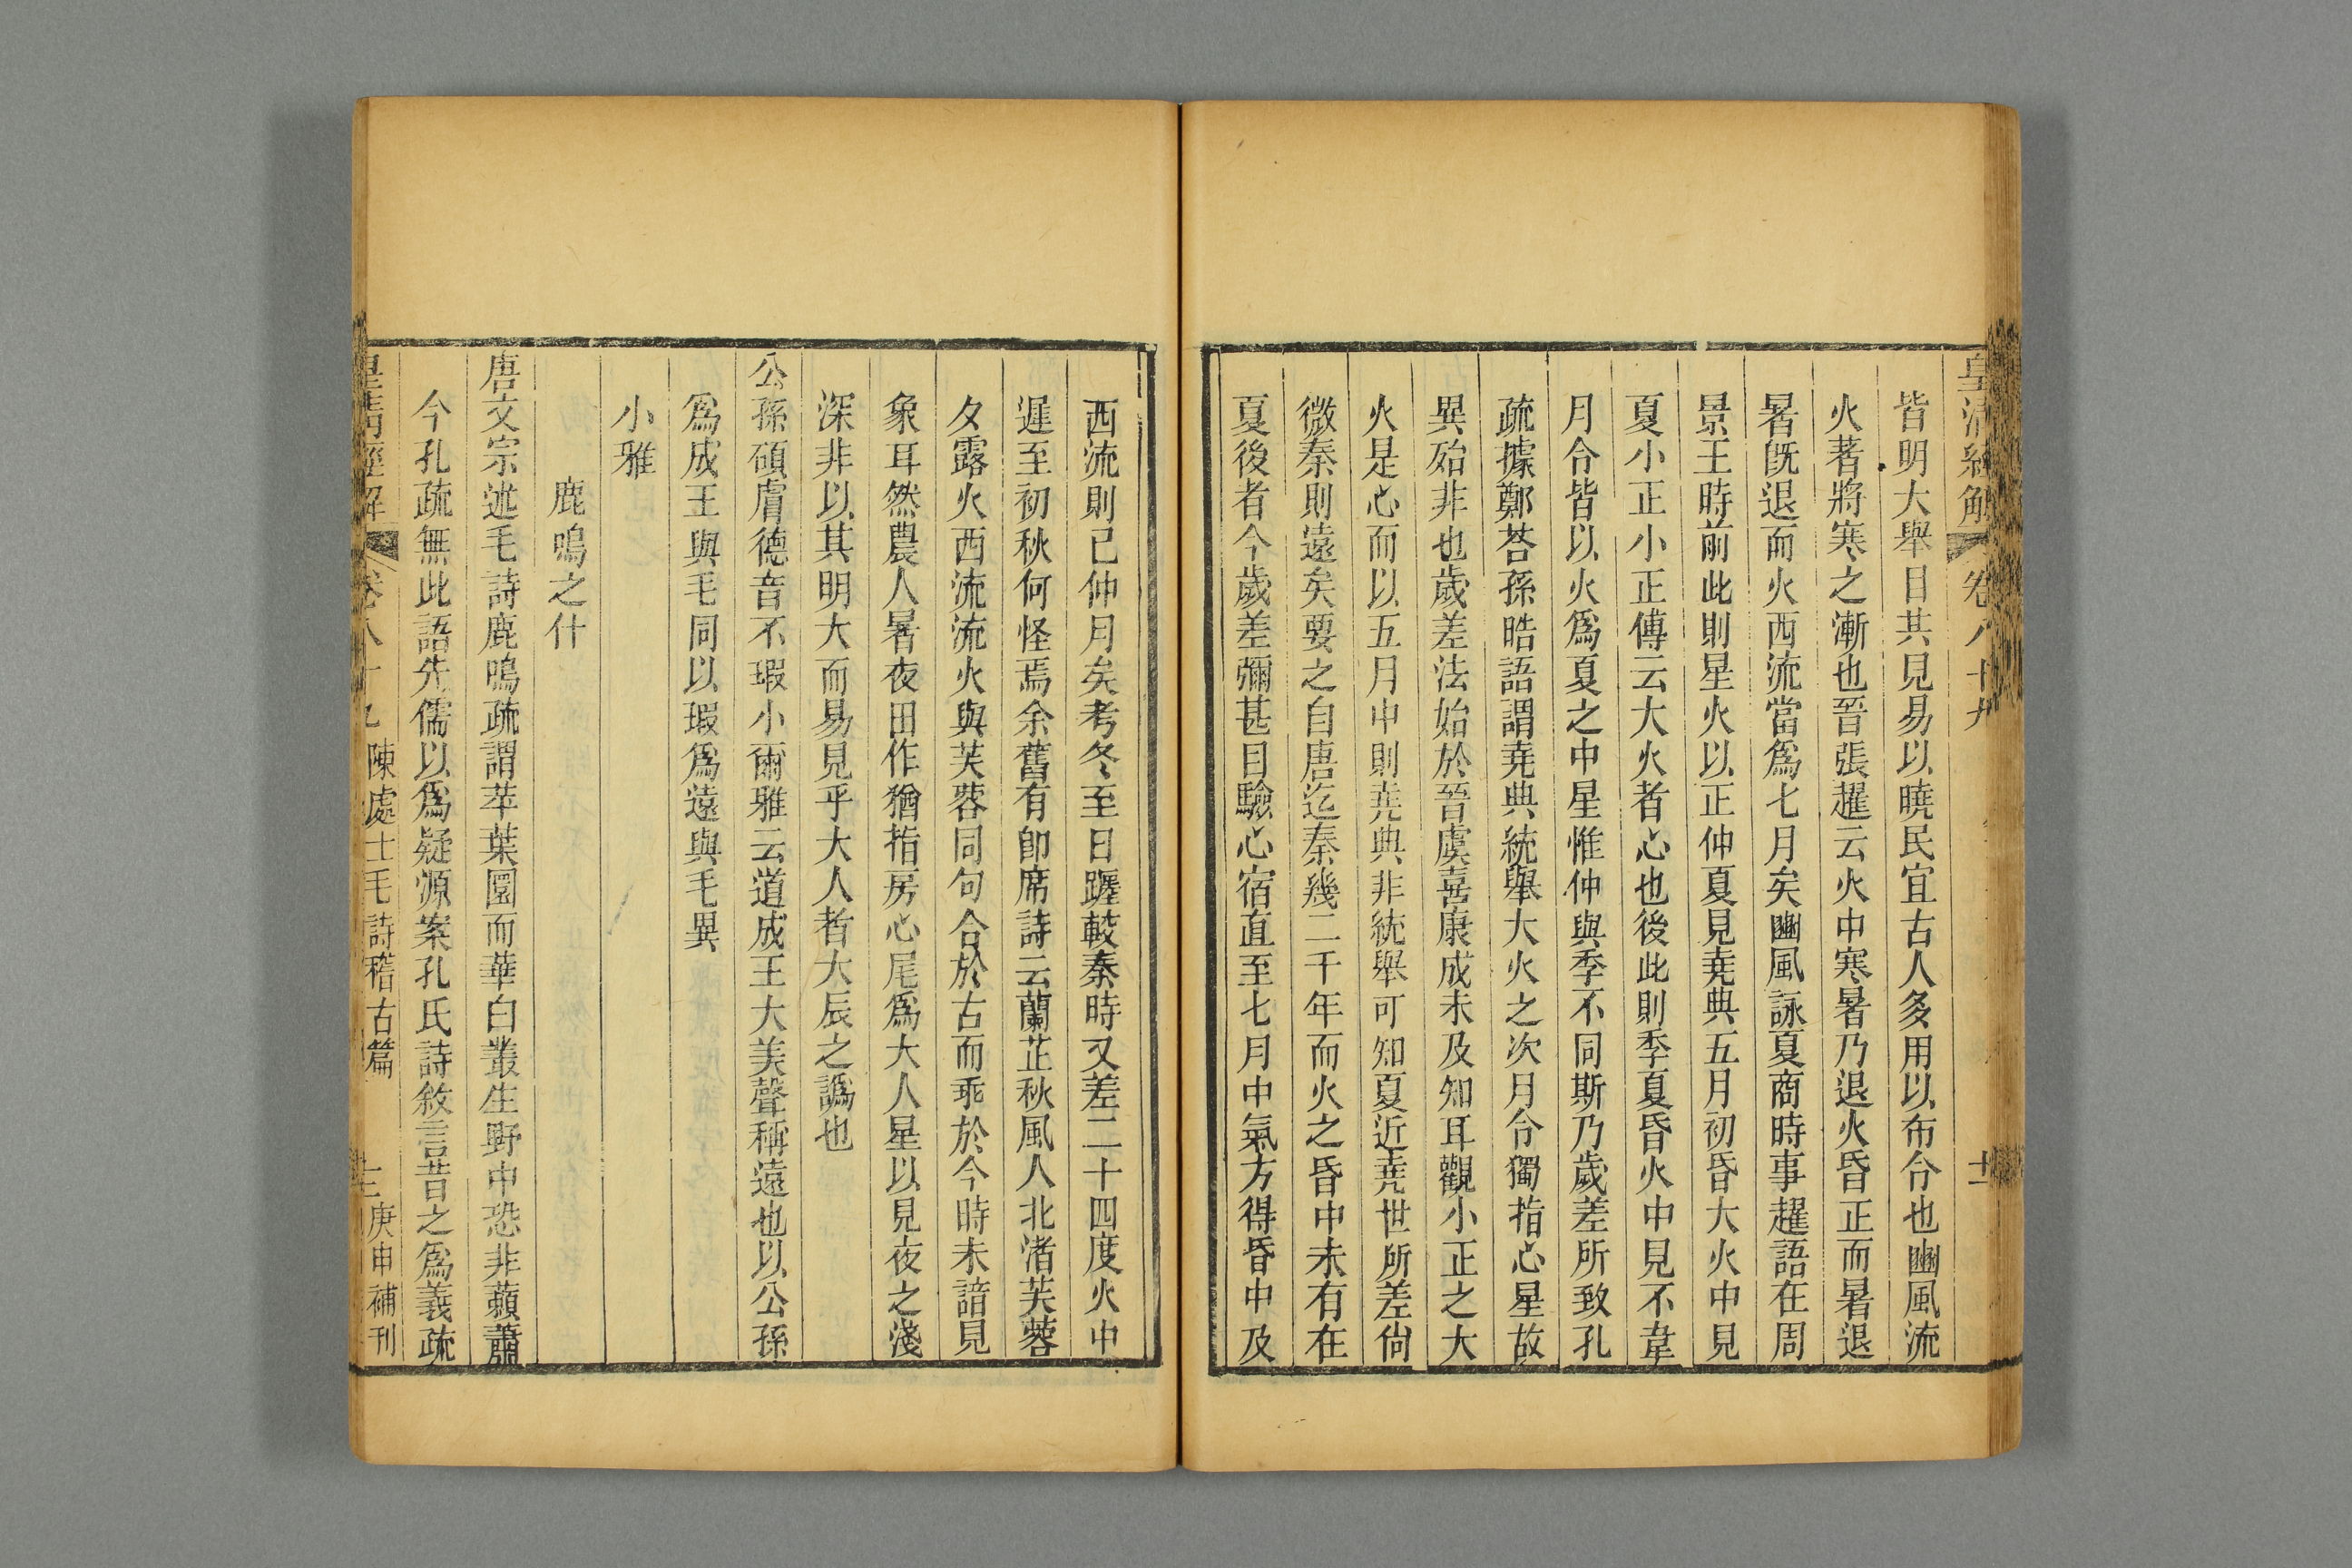 皇清經解 卷八十九 十二
皆明大舉目其見易以曉民宜古人多用以布令也豳風流
火著將寒之漸也晉張趯云火中寒暑乃退火昏正而暑退
暑旣退而火西流當爲七月矣豳風詠夏商時事趯語在周
景王時前此則星火以正仲夏見堯典五月初昏大火中見
夏小正小正傳云大火者心也後此則季夏昏火中見不韋
月令皆以火爲夏之中星惟仲與季不同斯乃歲差所致孔
疏據鄭荅孫晧語謂堯典統舉大火之次月令獨指心星故
異殆非也歲差法始於晉虞喜康成未及知耳觀小正之大
火是心而以五月中則堯典非統舉可知夏近堯世所差尙
微秦則遠矣要之自唐迄秦幾二千年而火之昏中未有在
夏後者今歲差彌甚目驗心宿直至七月中氣方得昏中及
西流則已仲月矣考冬至日躔較秦時又差二十四度火中
遲至初秋何怪焉余舊有卽席詩云蘭芷秋風人北渚芙蓉
夕露火西流流火與芙蓉同句合於古而乖於今時未諳見
象耳然農人暑夜田作猶指房心尾爲大人星以見夜之淺
深非以其明大而易見乎大人者大辰之譌也
公孫碩膚德音不瑕小爾雅云道成王大美聲稱遠也以公孫
爲成王與毛同以瑕爲遠與毛異
小雅
鹿鳴之什
唐文宗述毛詩鹿鳴疏謂苹葉圓而華白叢生野中恐非藾蕭
今孔疏無此語先儒以爲疑源案孔氏詩敘言昔之爲義疏
皇清經解 卷八十九 陳處士毛詩稽古篇 十三 庚申補刊